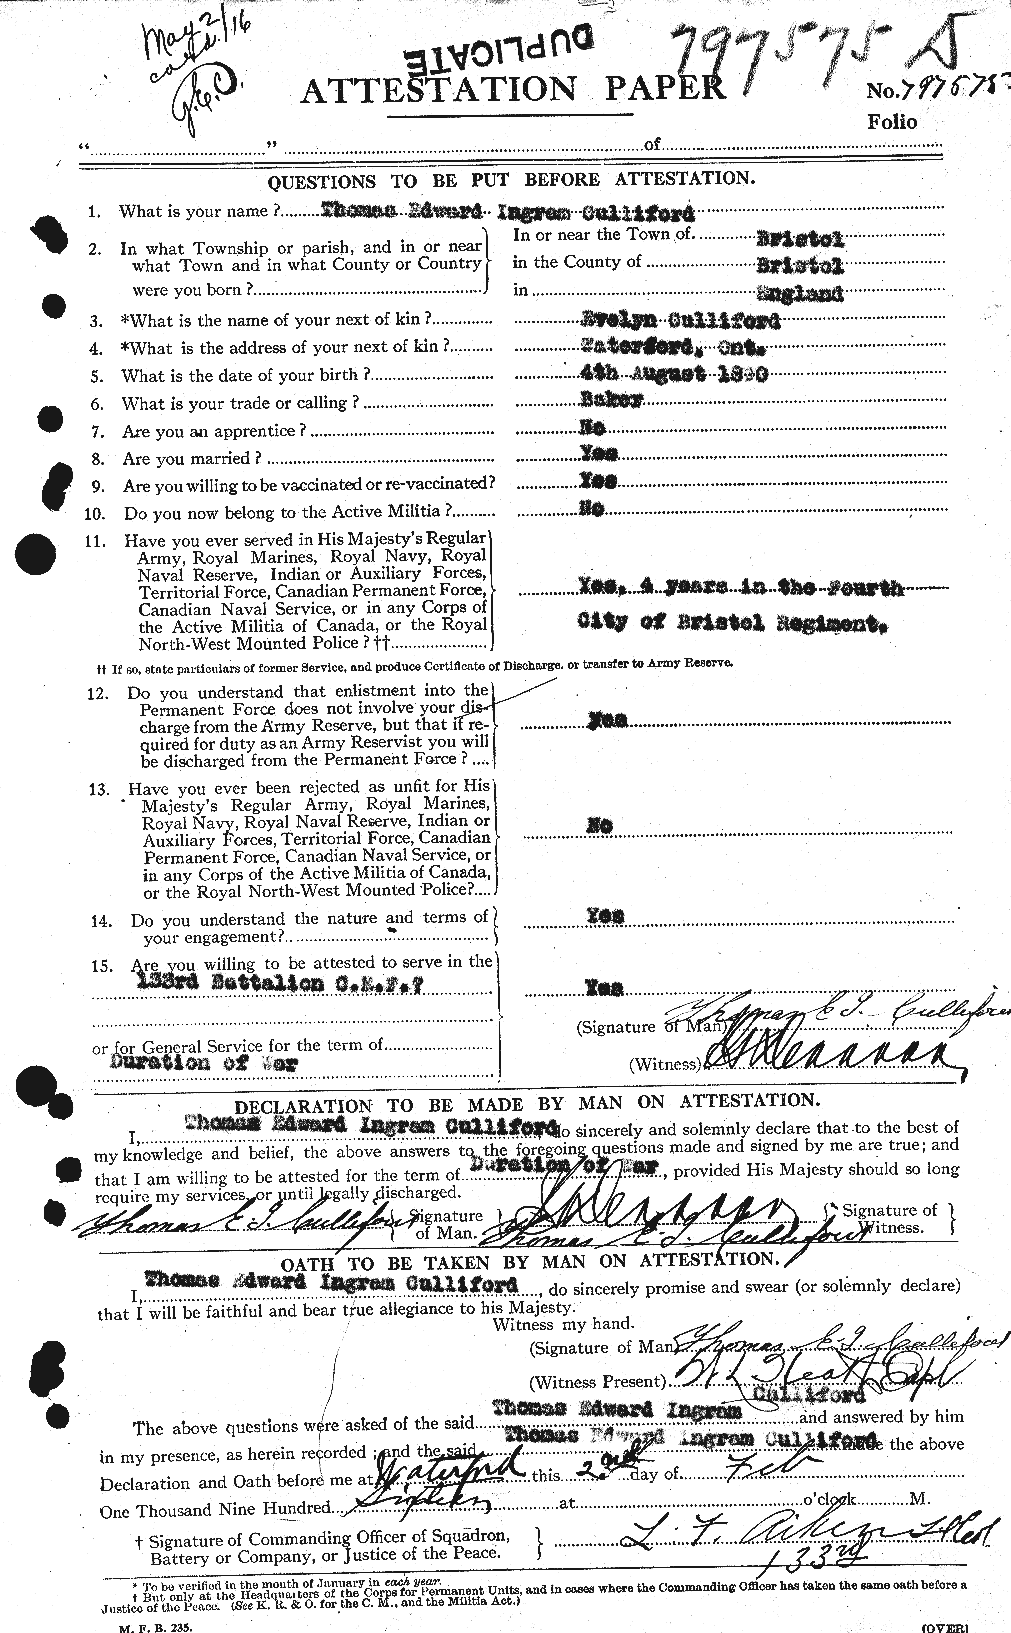 May 2/16
DUPLICATE
797575 D
ATTESTATION PAPER
No. 797575
Folio
" " of
QUESTIONS TO BE PUT BEFORE ATTESTATION.
1. What is your name? Thomas Edward Ingram Culliford
2. In what Township or parish, and in or near what Town and in what County or Country were you born?
In or near the Town of Bristol
in the County of Bristol
in England
3. *What is the name of your next of kin? Evelyn Culliford
4. *What is the address of your next of kin? Waterford, Ont.
5. What is the date of your birth? 4th August 18 0
6. What is your trade or calling? Baker
7. Are you an apprentice? No
8. Are you married? Yes
9. Are you willing to be vaccinated or re-vaccinated? Yes
10. Do you now belong to the Active Militia? No
11. Have you ever served in His Majesty's Regular
Army, Royal Marines, Royal Navy, Royal
Naval Reserve, Indian or Auxiliary Forces,
Territorial Force, Canadian Permanent Force,
Canadian Naval Service, or in any Corps of
the Active Militia of Canada, or the Royal
North-West Mounted Police? ††
Yes, 4 years in the Fourth
City of Bristol Regiment.
†† If so, state particulars of former Service, and produce Certificate of Discharge, or transfer to Army Reserve.
12. Do you understand that enlistment into the
Permanent Force does not involve your dis-
charge from the Army Reserve, but that if re-
quired for duty as an Army Reservist you will
be discharged from the Permanent Force?
Yes
13. Have you ever been rejected as unfit for His
Majesty's Regular Army, Royal Marines,
Royal Navy, Royal Naval Reserve, Indian or
Auxiliary Forces, Territorial Force, Canadian
Permanent Force, Canadian Naval Service, or
in any Corps of the Active Militia of Canada,
or the Royal North-West Mounted Police?
No
14. Do you understand the nature and terms of
your engagement?
Yes
15. Are you willing to be attested to serve in the
133rd Battalion C.E.F.?
Yes
(Signature of Man) Thomas E I Culliford
or for General Service for the term of
(Witness)
Duration of War
DECLARATION TO BE MADE BY MAN ON ATTESTATION.
I, Thomas Edward Ingram Culliford do sincerely and solemnly declare that to the best of
my knowledge and belief, the above answers to the foregoing questions made and signed by me are true; and
that I am willing to be attested for the term of Duration of War, provided His Majesty should so long
require my services, or until legally discharged.
Thomas E I Culliford {Signature of Man.} {Signature of Witness.}
Thomas E I Culliford
OATH TO BE TAKEN BY MAN ON ATTESTATION.
I, Thomas Edward Ingram Culliford, do sincerely promise and swear (or solemnly declare)
that I will be faithful and bear true allegiance to his Majesty.
Witness my hand.
(Signature of Man) Thomas E I Culliford
(Witness Present) Capt
Culliford
The above questions were asked of the said Thomas Edward Ingram and answered by him
in my presence, as herein recorded; and the said Thomas Edward Ingram Culliford the above
Declaration and Oath before me at Waterford this 2nd day of Feb
One Thousand Nine Hundred Sixteen at o'clock M.
† Signature of Commanding Officer of Squadron,
Battery or Company, or Justice of the Peace.
L. F. Aiken
133rd
* To be verified in the month of January in each year.
† But only at the Headquarters of the Corps for Permanent Units, and in cases where the Commanding Officer has taken the same oath before a
Justice of the Peace. (See K. R. & O. for the C. M., and the Militia Act.)
M. F. B. 235.
(OVER)